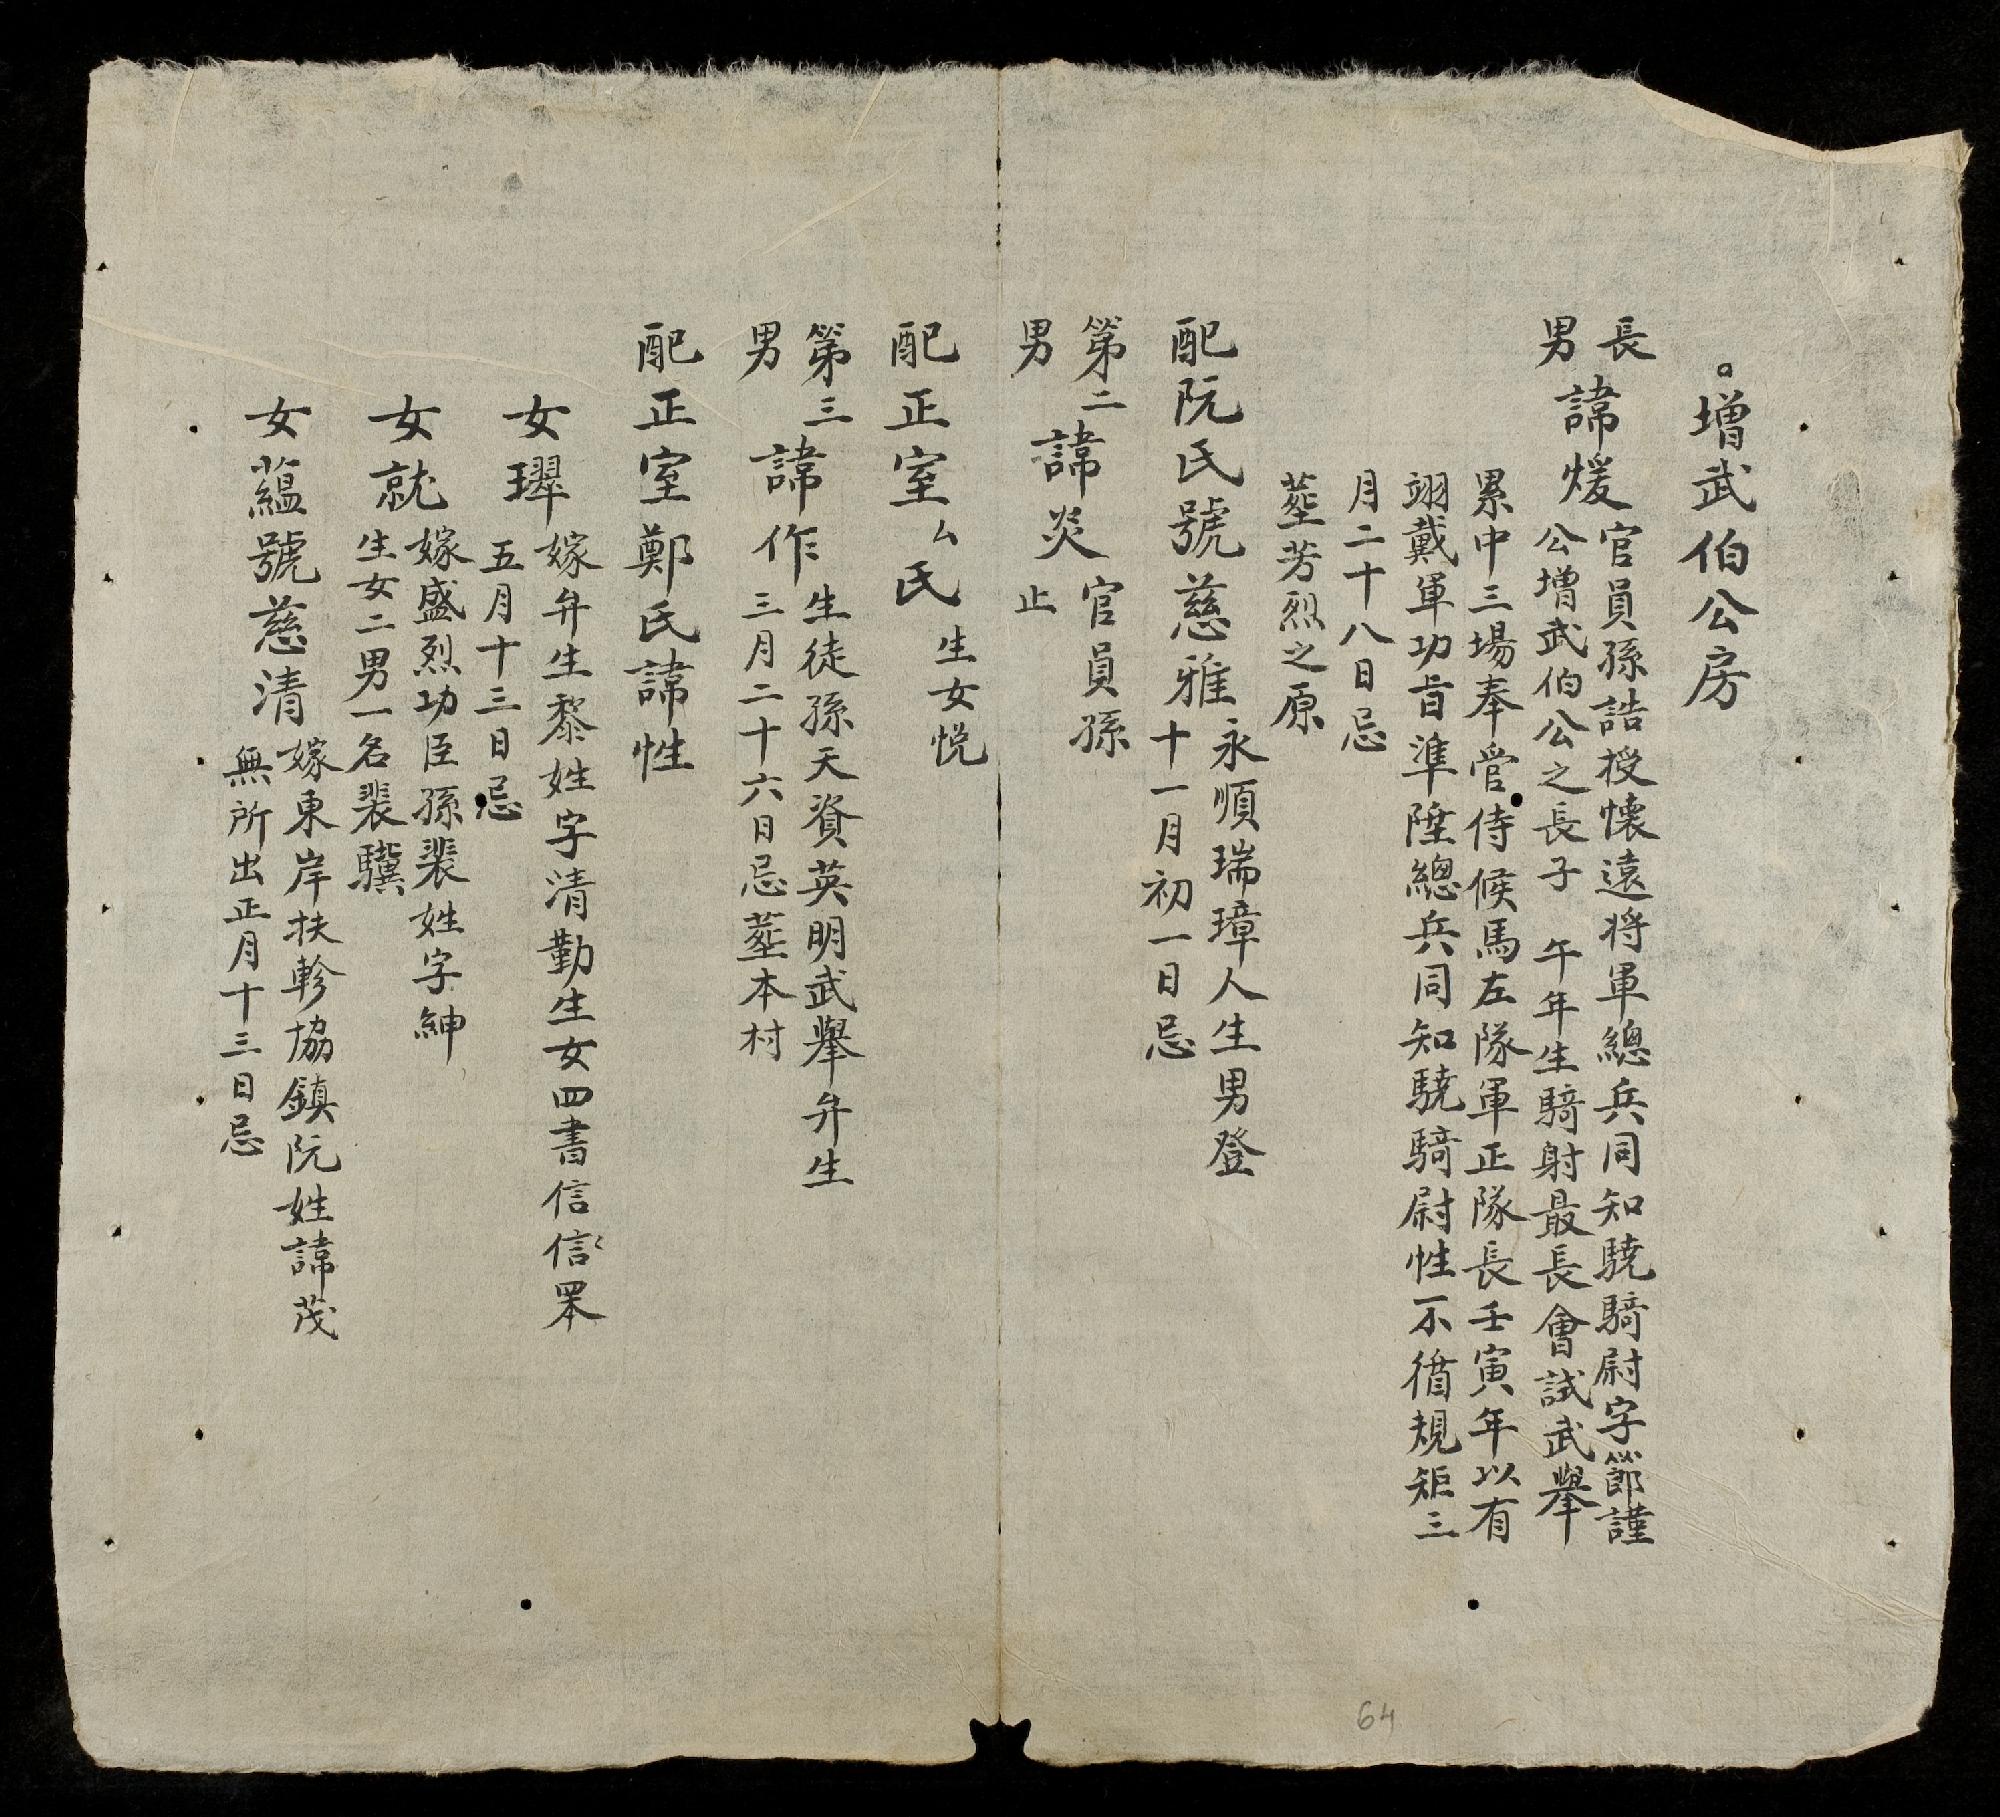 增武伯公房
長男
諱煖
官員孫誥授懷遠将軍總兵同知驍騎尉字節謹
公增武伯公之長子 午年生騎射最長會試武舉
累中三場奉管侍候馬左隊軍正隊長壬寅年以有
翊戴軍功旨準陞總兵同知驍騎尉性不循規矩三
月二十八日忌
塟芳烈之原
配阮氏號慈雅
永順瑞璋人生男登
十一月初一日忌
第二男
諱炎
官員孫
止
配正室厶氏
生女悦
第三男
諱作
生徒孫天資英明武舉弁生
三月二十六日忌塟本村
配正室鄭氏諱性
女㻰
嫁弁生黎姓字清勤生女四書信信
五月十三日忌
女就
嫁盛烈功臣孫裴姓字紳
生女二男一名裴驥
女蘊號慈清
嫁東岸扶軫協鎮阮姓諱茂
無所出正月十三日忌
64